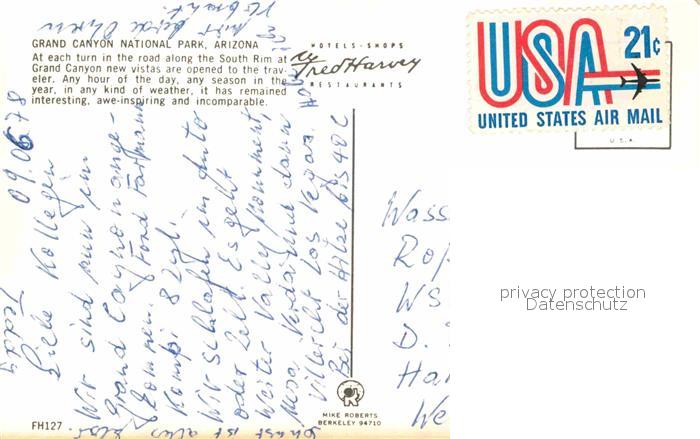 GRAND CANYON NATIONAL PARK, ARIZONA
At each turn in the road along the South Rim at
Grand Canyon new vistas are opened to the trav-
eler. Any hour of the day, any season in the
year, in any kind of weather, it has remained
interesting, awe-inspiring and incomparable.
HOTELS - SHOPS
Fred Harvey
RESTAURANTS
USA 21c
UNITED STATES AIR MAIL
U.S.A.
09.06.78
Liebe Kollegen
Wir sind nun im
Grand Canyon ange-
kommen. Ford
Kombi 8 Zyl.
Wir schlafen im Auto
oder Zelt. Es geht
weiter Vally
Mesa Verde und dann
Las Vegas.
Bei der Hitze bis 40 C
Teddy
Wass
Rop
WS
D.
Ha
We
privacy protection
Datenschutz
FH127
MIKE ROBERTS
BERKELEY 94710